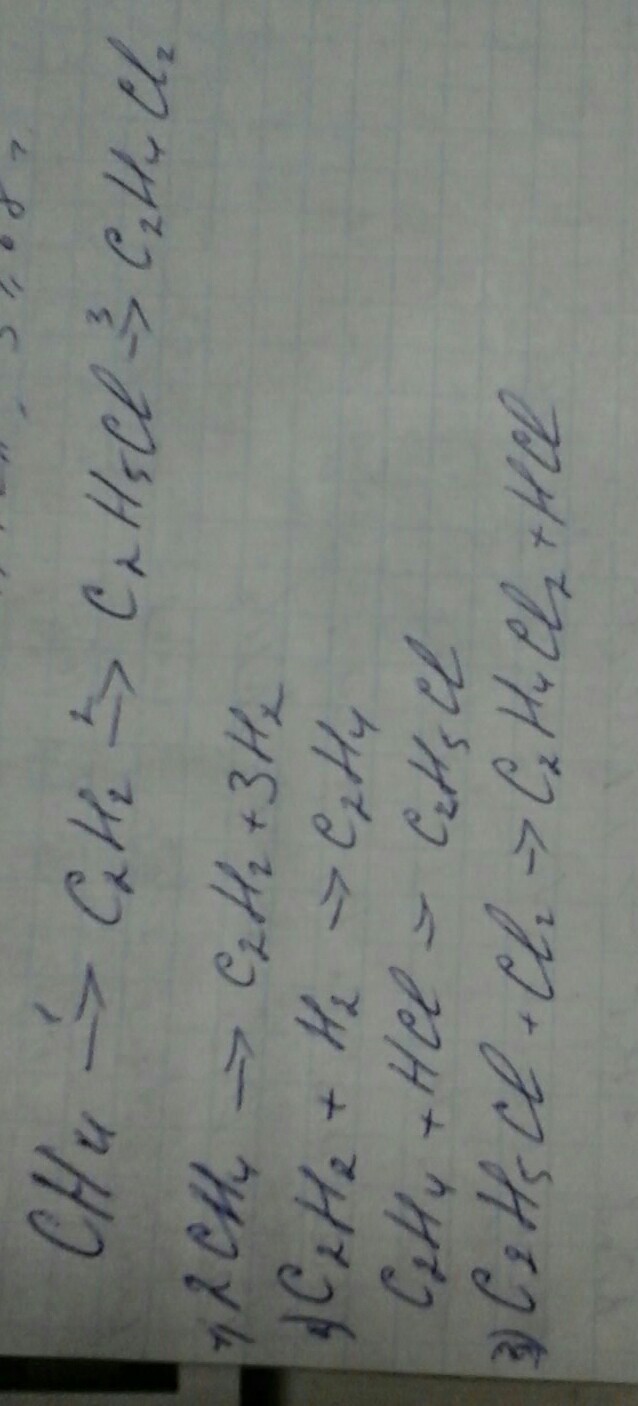 CH4 —1→ C2H2 —2→ C2H5Cl —3→ C2H4Cl2
1) 2CH4 → C2H2 + 3H2
2) C2H2 + H2 → C2H4
C2H4 + HCl → C2H5Cl
3) C2H5Cl + Cl2 → C2H4Cl2 + HCl